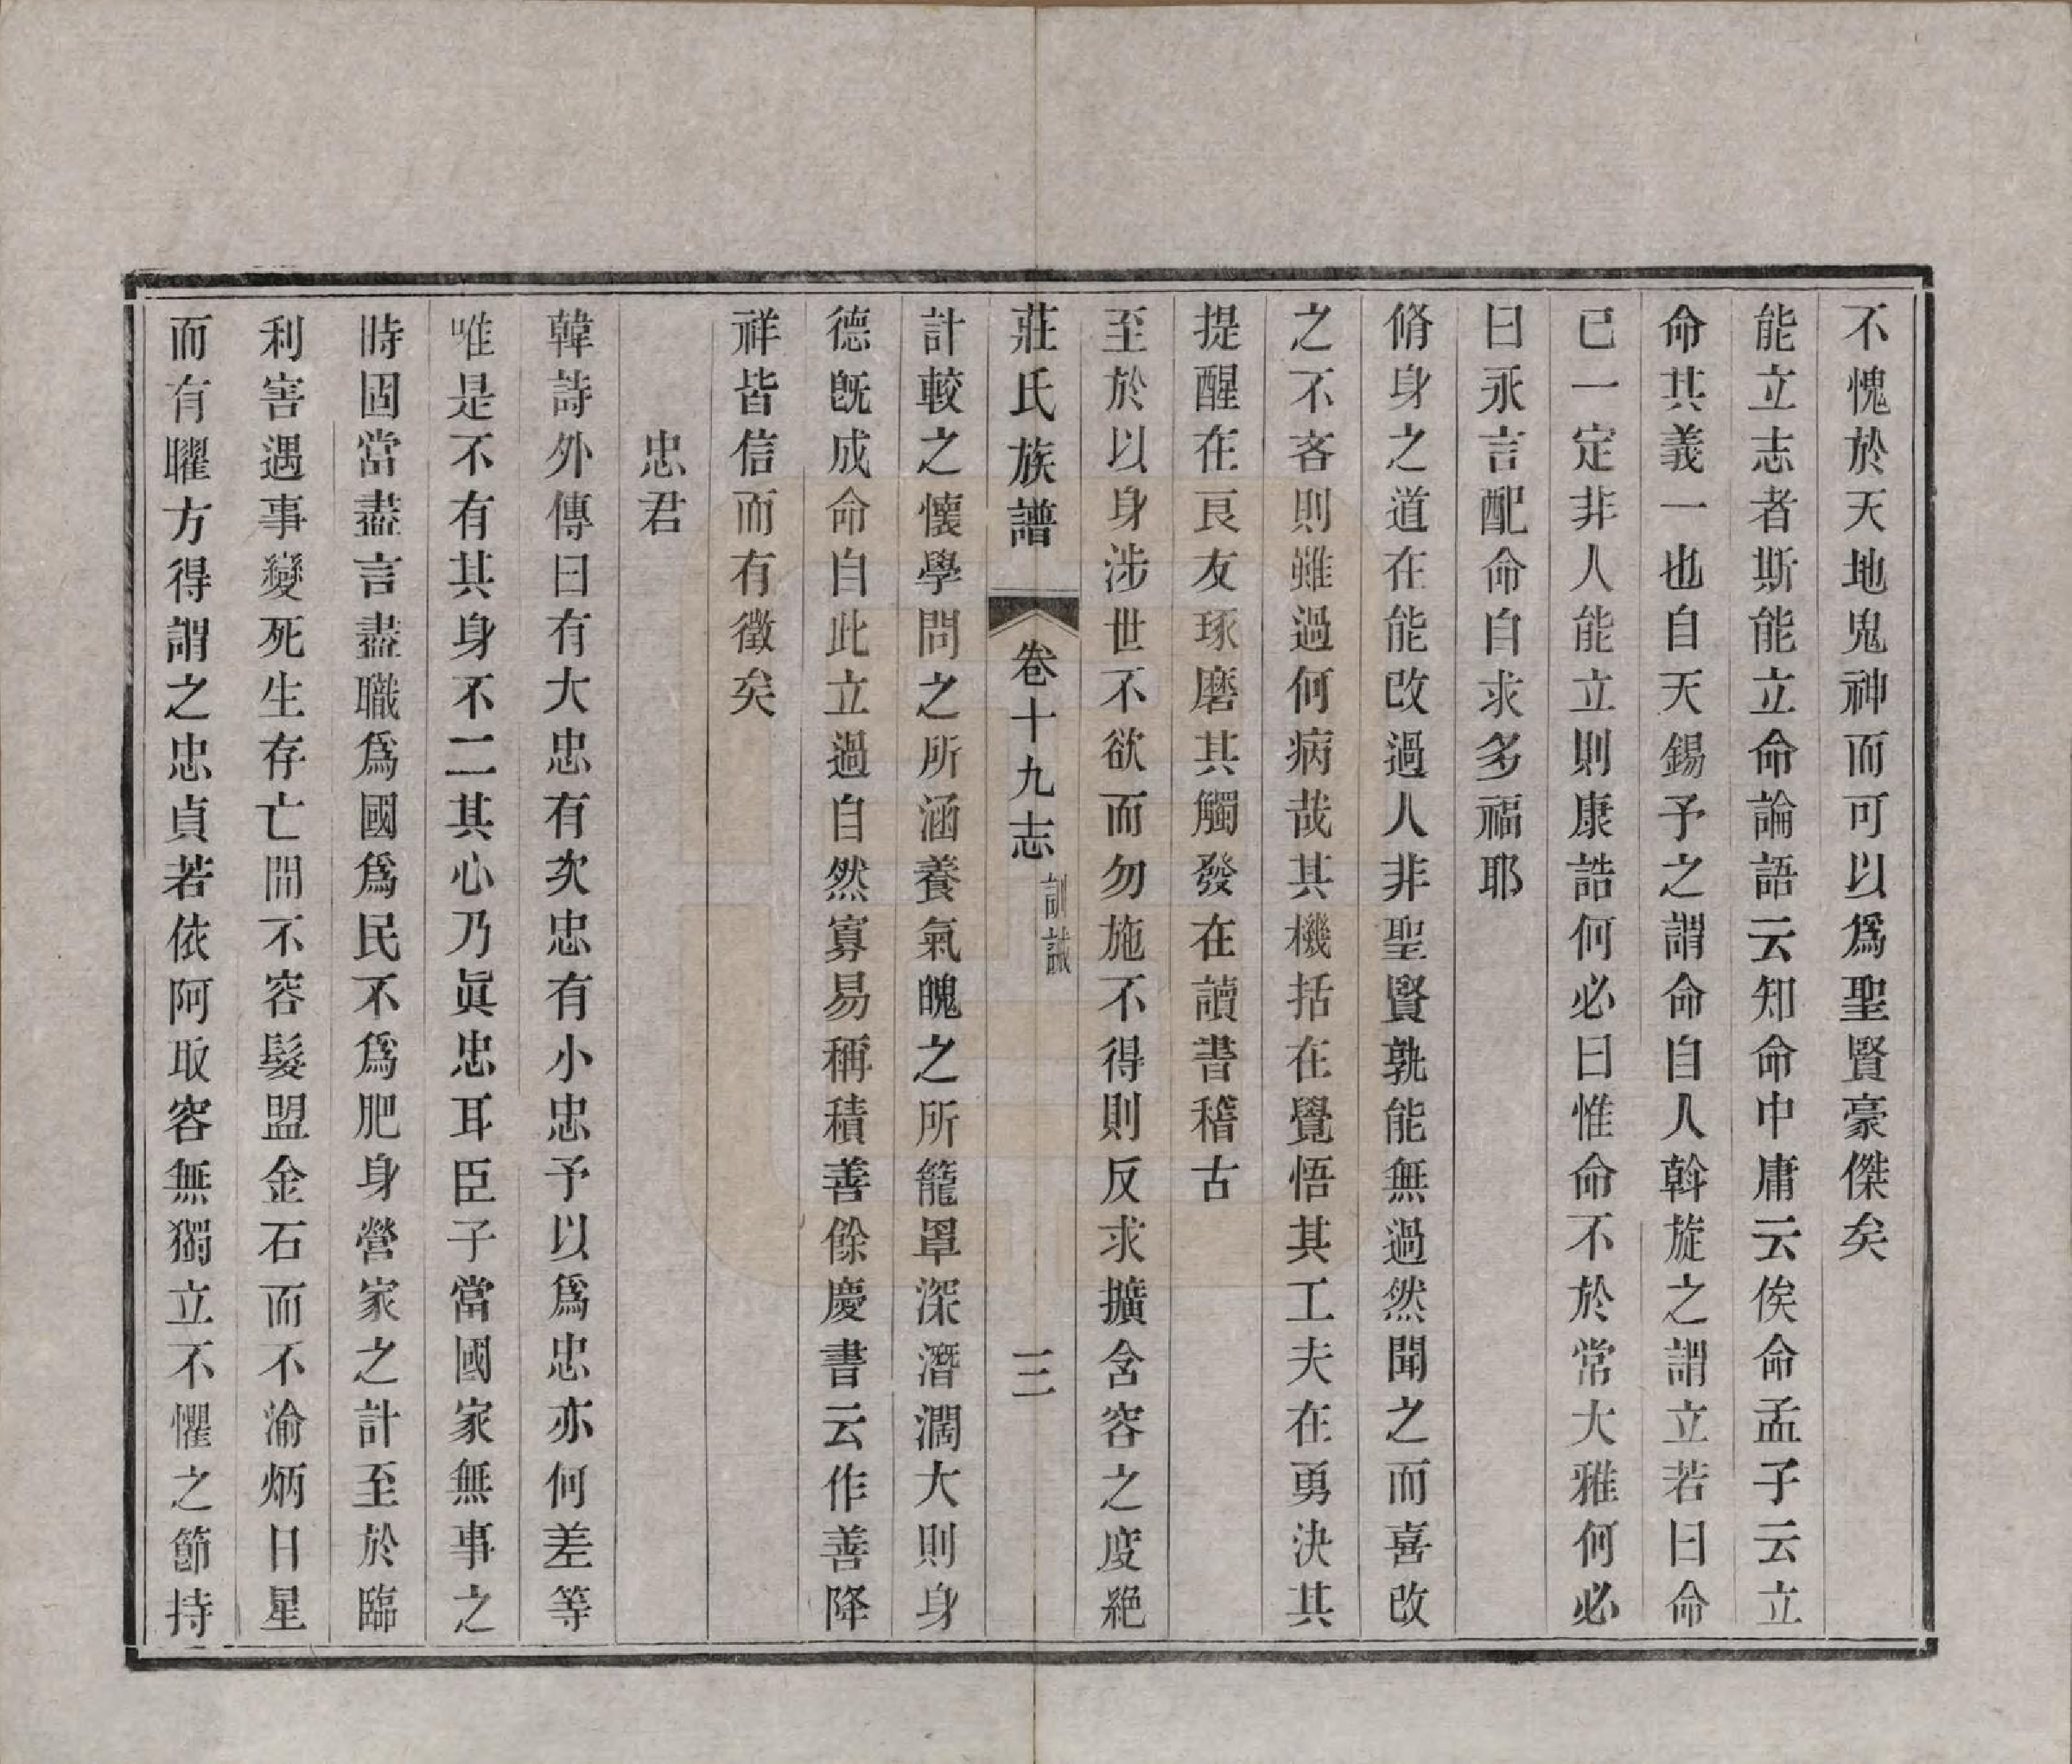 不愧於天地鬼神而可以爲聖賢豪傑矣
能立志者斯能立命論語云知命中庸云俟命孟子云立
命其義一也自天錫予之謂命自人斡旋之謂立若曰命
已一定非人能立則康誥何必曰惟命不於常大雅何必
曰永言配命自求多福耶
脩身之道在能改過人非聖賢孰能無過然聞之而喜改
之不吝則雖過何病哉其機括在覺悟其工夫在勇決其
提醒在良友琢磨其觸發在讀書稽古
至於以身涉世不欲而勿施不得則反求擴含容之度絕
莊氏族譜 卷十九志 訓誡 三
計較之懷學問之所涵養氣魄之所籠罩深潛濶大則身
德旣成命自此立過自然寡易稱積善餘慶書云作善降
祥皆信而有徵矣
忠君
韓詩外傳曰有大忠有次忠有小忠予以爲忠亦何差等
唯是不有其身不二其心乃眞忠耳臣子當國家無事之
時固當盡言盡職爲國爲民不爲肥身營家之計至於臨
利害遇事變死生存亡間不容髮盟金石而不渝炳日星
而有曜方得謂之忠貞若依阿取容無獨立不懼之節持